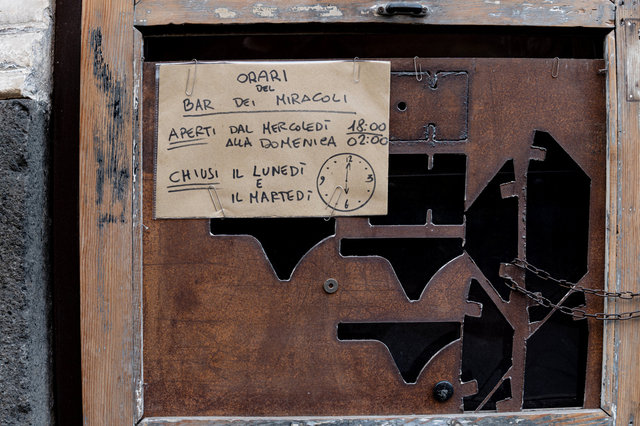 ORARI
DEL
BAR DEI MIRACOLI
APERTI DAL MERCOLEDÌ 18:00
ALLA DOMENICA 02:00
CHIUSI IL LUNEDÌ
E
IL MARTEDÌ
12
9 3
6